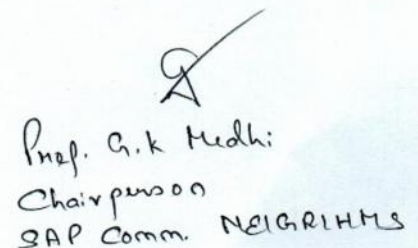 Prof. G.K Medhi
Chairperson
SAP Comm. NEIGRIHMS